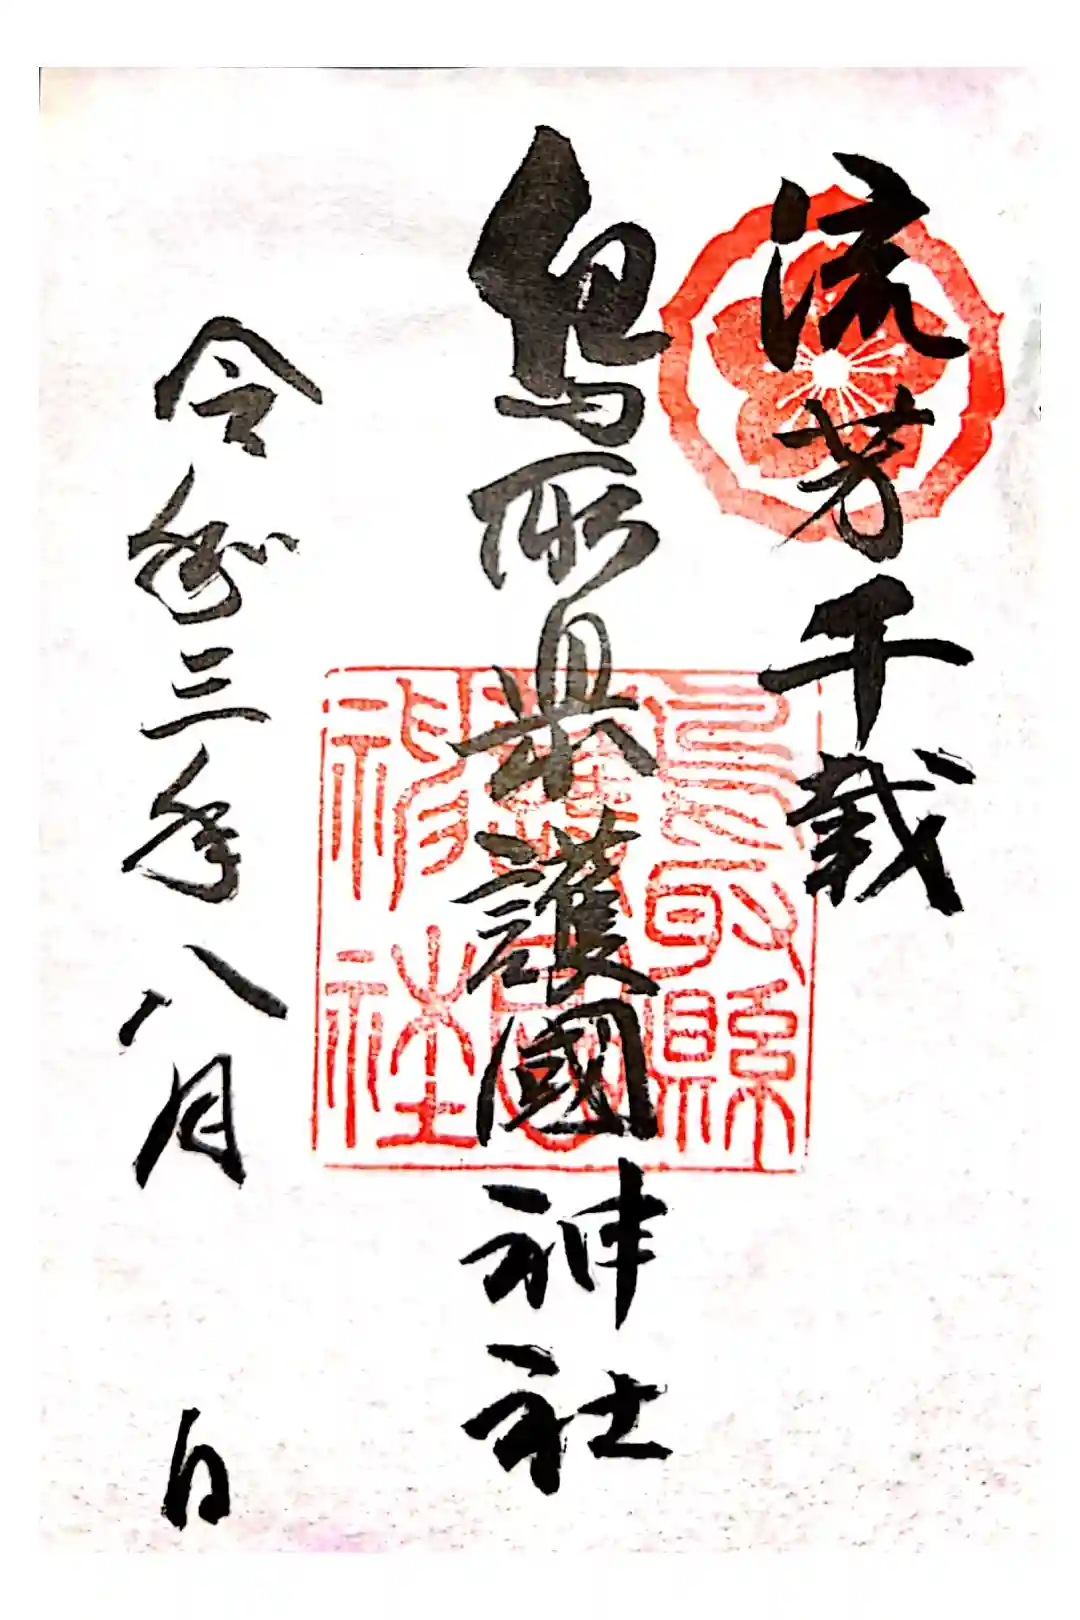 流芳千載
鳥取県護國神社
令和三年八月 日
鳥取縣護國神社